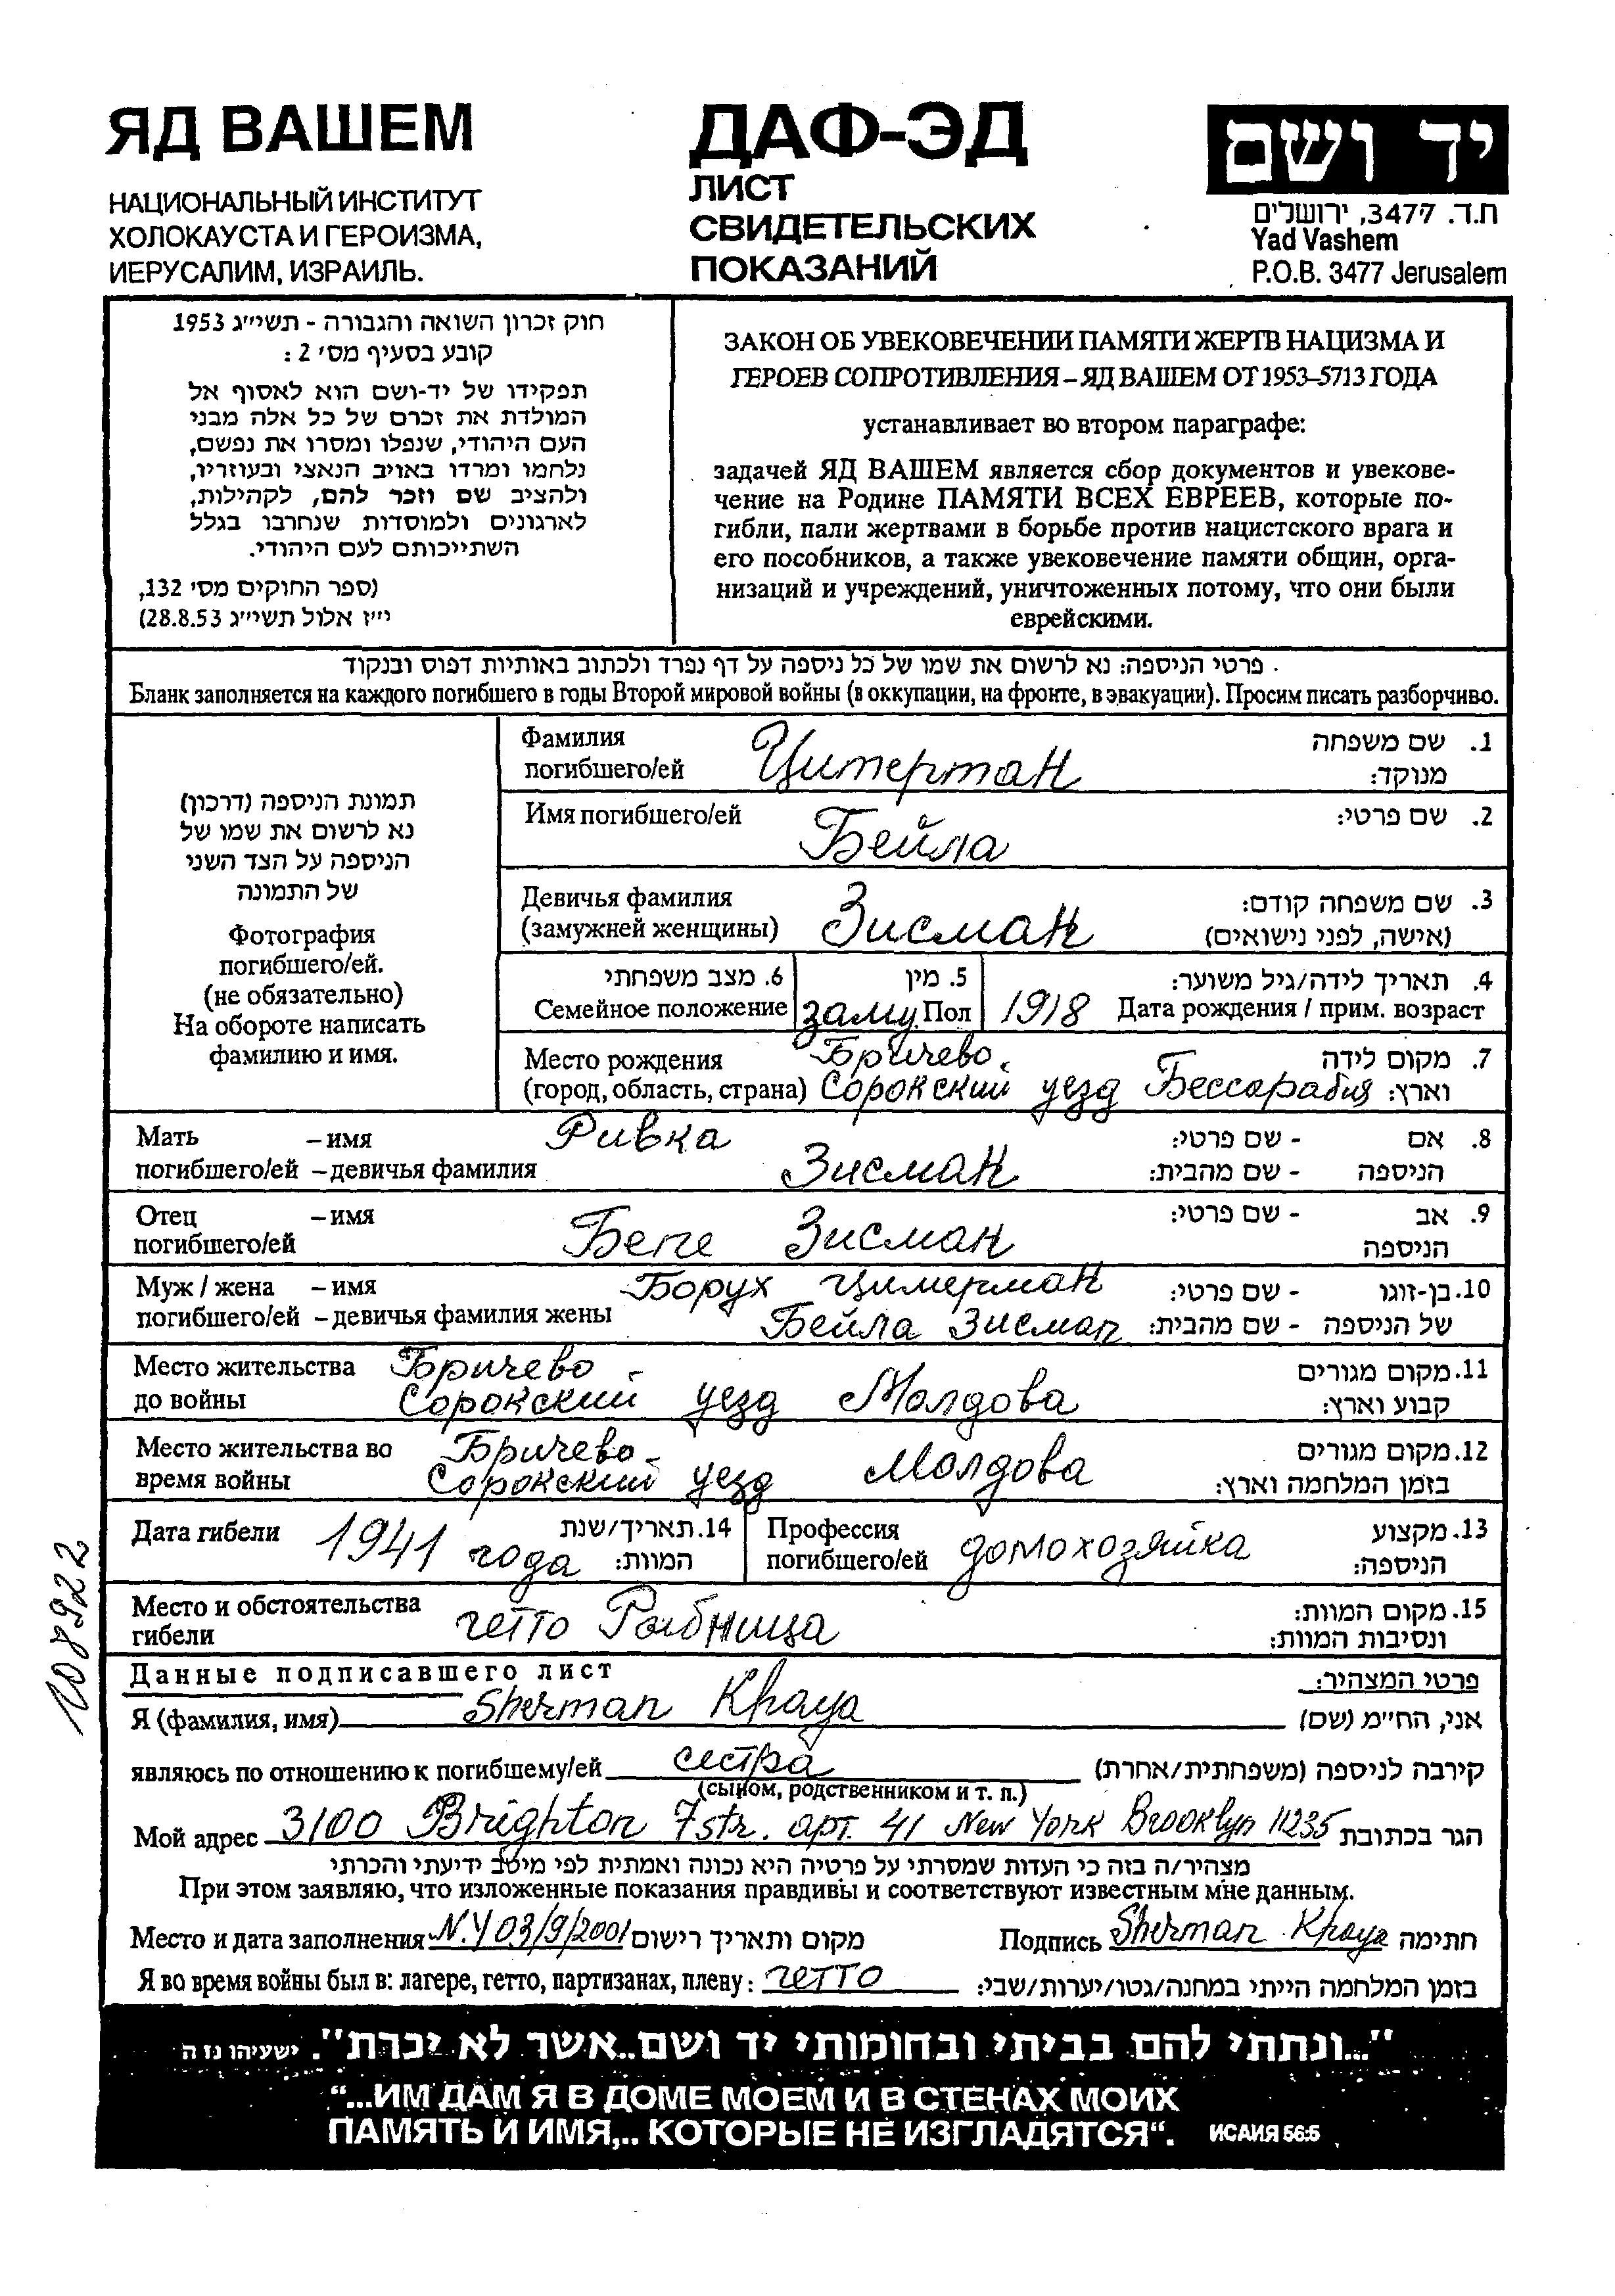 ЯД ВАШЕМ
НАЦИОНАЛЬНЫЙ ИНСТИТУТ
ХОЛОКАУСТА И ГЕРОИЗМА,
ИЕРУСАЛИМ, ИЗРАИЛЬ.
ДАФ-ЭД
ЛИСТ
СВИДЕТЕЛЬСКИХ
ПОКАЗАНИЙ
יד ושם
ת.ד. 3477, ירושלים
Yad Vashem
P.O.B. 3477 Jerusalem
חוק זכרון השואה והגבורה - תשי״ג 1953
קובע בסעיף מס׳ 2:
תפקידו של יד-ושם הוא לאסוף אל
המולדת את זכרם של כל אלה מבני
העם היהודי, שנפלו ומסרו את נפשם,
נלחמו ומרדו באויב הנאצי ובעוזריו,
ולהציב שם וזכר להם, לקהילות,
לארגונים ולמוסדות שנחרבו בגלל
השתייכותם לעם היהודי.
(ספר החוקים מס׳ 132,
י״ז אלול תשי״ג 28.8.53)
ЗАКОН ОБ УВЕКОВЕЧЕНИИ ПАМЯТИ ЖЕРТВ НАЦИЗМА И
ГЕРОЕВ СОПРОТИВЛЕНИЯ – ЯД ВАШЕМ ОТ 1953–5713 ГОДА
устанавливает во втором параграфе:
задачей ЯД ВАШЕМ является сбор документов и увекове-
чение на Родине ПАМЯТИ ВСЕХ ЕВРЕЕВ, которые по-
гибли, пали жертвами в борьбе против нацистского врага и
его пособников, а также увековечение памяти общин, орга-
низаций и учреждений, уничтоженных потому, что они были
еврейскими.
פרטי הניספה: נא לרשום את שמו של כל ניספה על דף נפרד ולכתוב באותיות דפוס ובנקוד
Бланк заполняется на каждого погибшего в годы Второй мировой войны (в оккупации, на фронте, в эвакуации). Просим писать разборчиво.
תמונת הניספה (דרכון)
נא לרשום את שמו של
הניספה על הצד השני
של התמונה
Фотография
погибшего/ей.
(не обязательно)
На обороте написать
фамилию и имя.
Фамилия Цимерман 1. שם משפחה
погибшего/ей מנוקד:
Имя погибшего/ей Бейла 2. שם פרטי:
Девичья фамилия Зисман 3. שם משפחה קודם:
(замужней женщины) (אישה, לפני נישואים)
6. מצב משפחתי 5. מין 4. תאריך לידה/גיל משוער:
Семейное положение заму. Пол 1918 Дата рождения / прим. возраст
Место рождения Бричево. 7. מקום לידה
(город, область, страна) Сорокский уезд Бессарабия וארץ:
Мать – имя Ривка 8. אם - שם פרטי:
погибшего/ей – девичья фамилия Зисман הניספה - שם מהבית:
Отец – имя Бепе Зисман 9. אב - שם פרטי:
погибшего/ей הניספה
Муж / жена – имя Борух Цимерман 10. בן-זוגו - שם פרטי:
погибшего/ей – девичья фамилия жены Бейла Зисман של הניספה - שם מהבית:
Место жительства Бричево 11. מקום מגורים
до войны Сорокский уезд Молдова קבוע וארץ:
Место жительства во Бричево 12. מקום מגורים
время войны Сорокский уезд Молдова בזמן המלחמה וארץ:
Дата гибели 1941 года 14. תאריך/שנת המוות:
Профессия погибшего/ей домохозяйка 13. מקצוע הניספה:
Место и обстоятельства гетто Рыбница 15. מקום המוות:
гибели ונסיבות המוות:
Данные подписавшего лист פרטי המצהיר:
Я (фамилия, имя) Sherman Khaya אני, הח״מ (שם)
являюсь по отношению к погибшему/ей сестра קירבה לניספה (משפחתית/אחרת)
(сыном, родственником и т. п.)
Мой адрес 3100 Brighton 7 str. apt. 41 New York Brooklyn 11235 הגר בכתובת
מצהיר/ה בזה כי העדות שמסרתי על פרטיה היא נכונה ואמתית לפי מיטב ידיעתי והכרתי
При этом заявляю, что изложенные показания правдивы и соответствуют известным мне данным.
Место и дата заполнения N.Y 03/9/2001 מקום ותאריך רישום Подпись Sherman Khaya חתימה
Я во время войны был в: лагере, гетто, партизанах, плену: гетто בזמן המלחמה הייתי במחנה/גטו/יערות/שבי:
"...ונתתי להם בביתי ובחומותי יד ושם..אשר לא יכרת". ישעיהו נז ה
“...ИМ ДАМ Я В ДОМЕ МОЕМ И В СТЕНАХ МОИХ
ПАМЯТЬ И ИМЯ,.. КОТОРЫЕ НЕ ИЗГЛАДЯТСЯ“. ИСАИЯ 56:5
108922